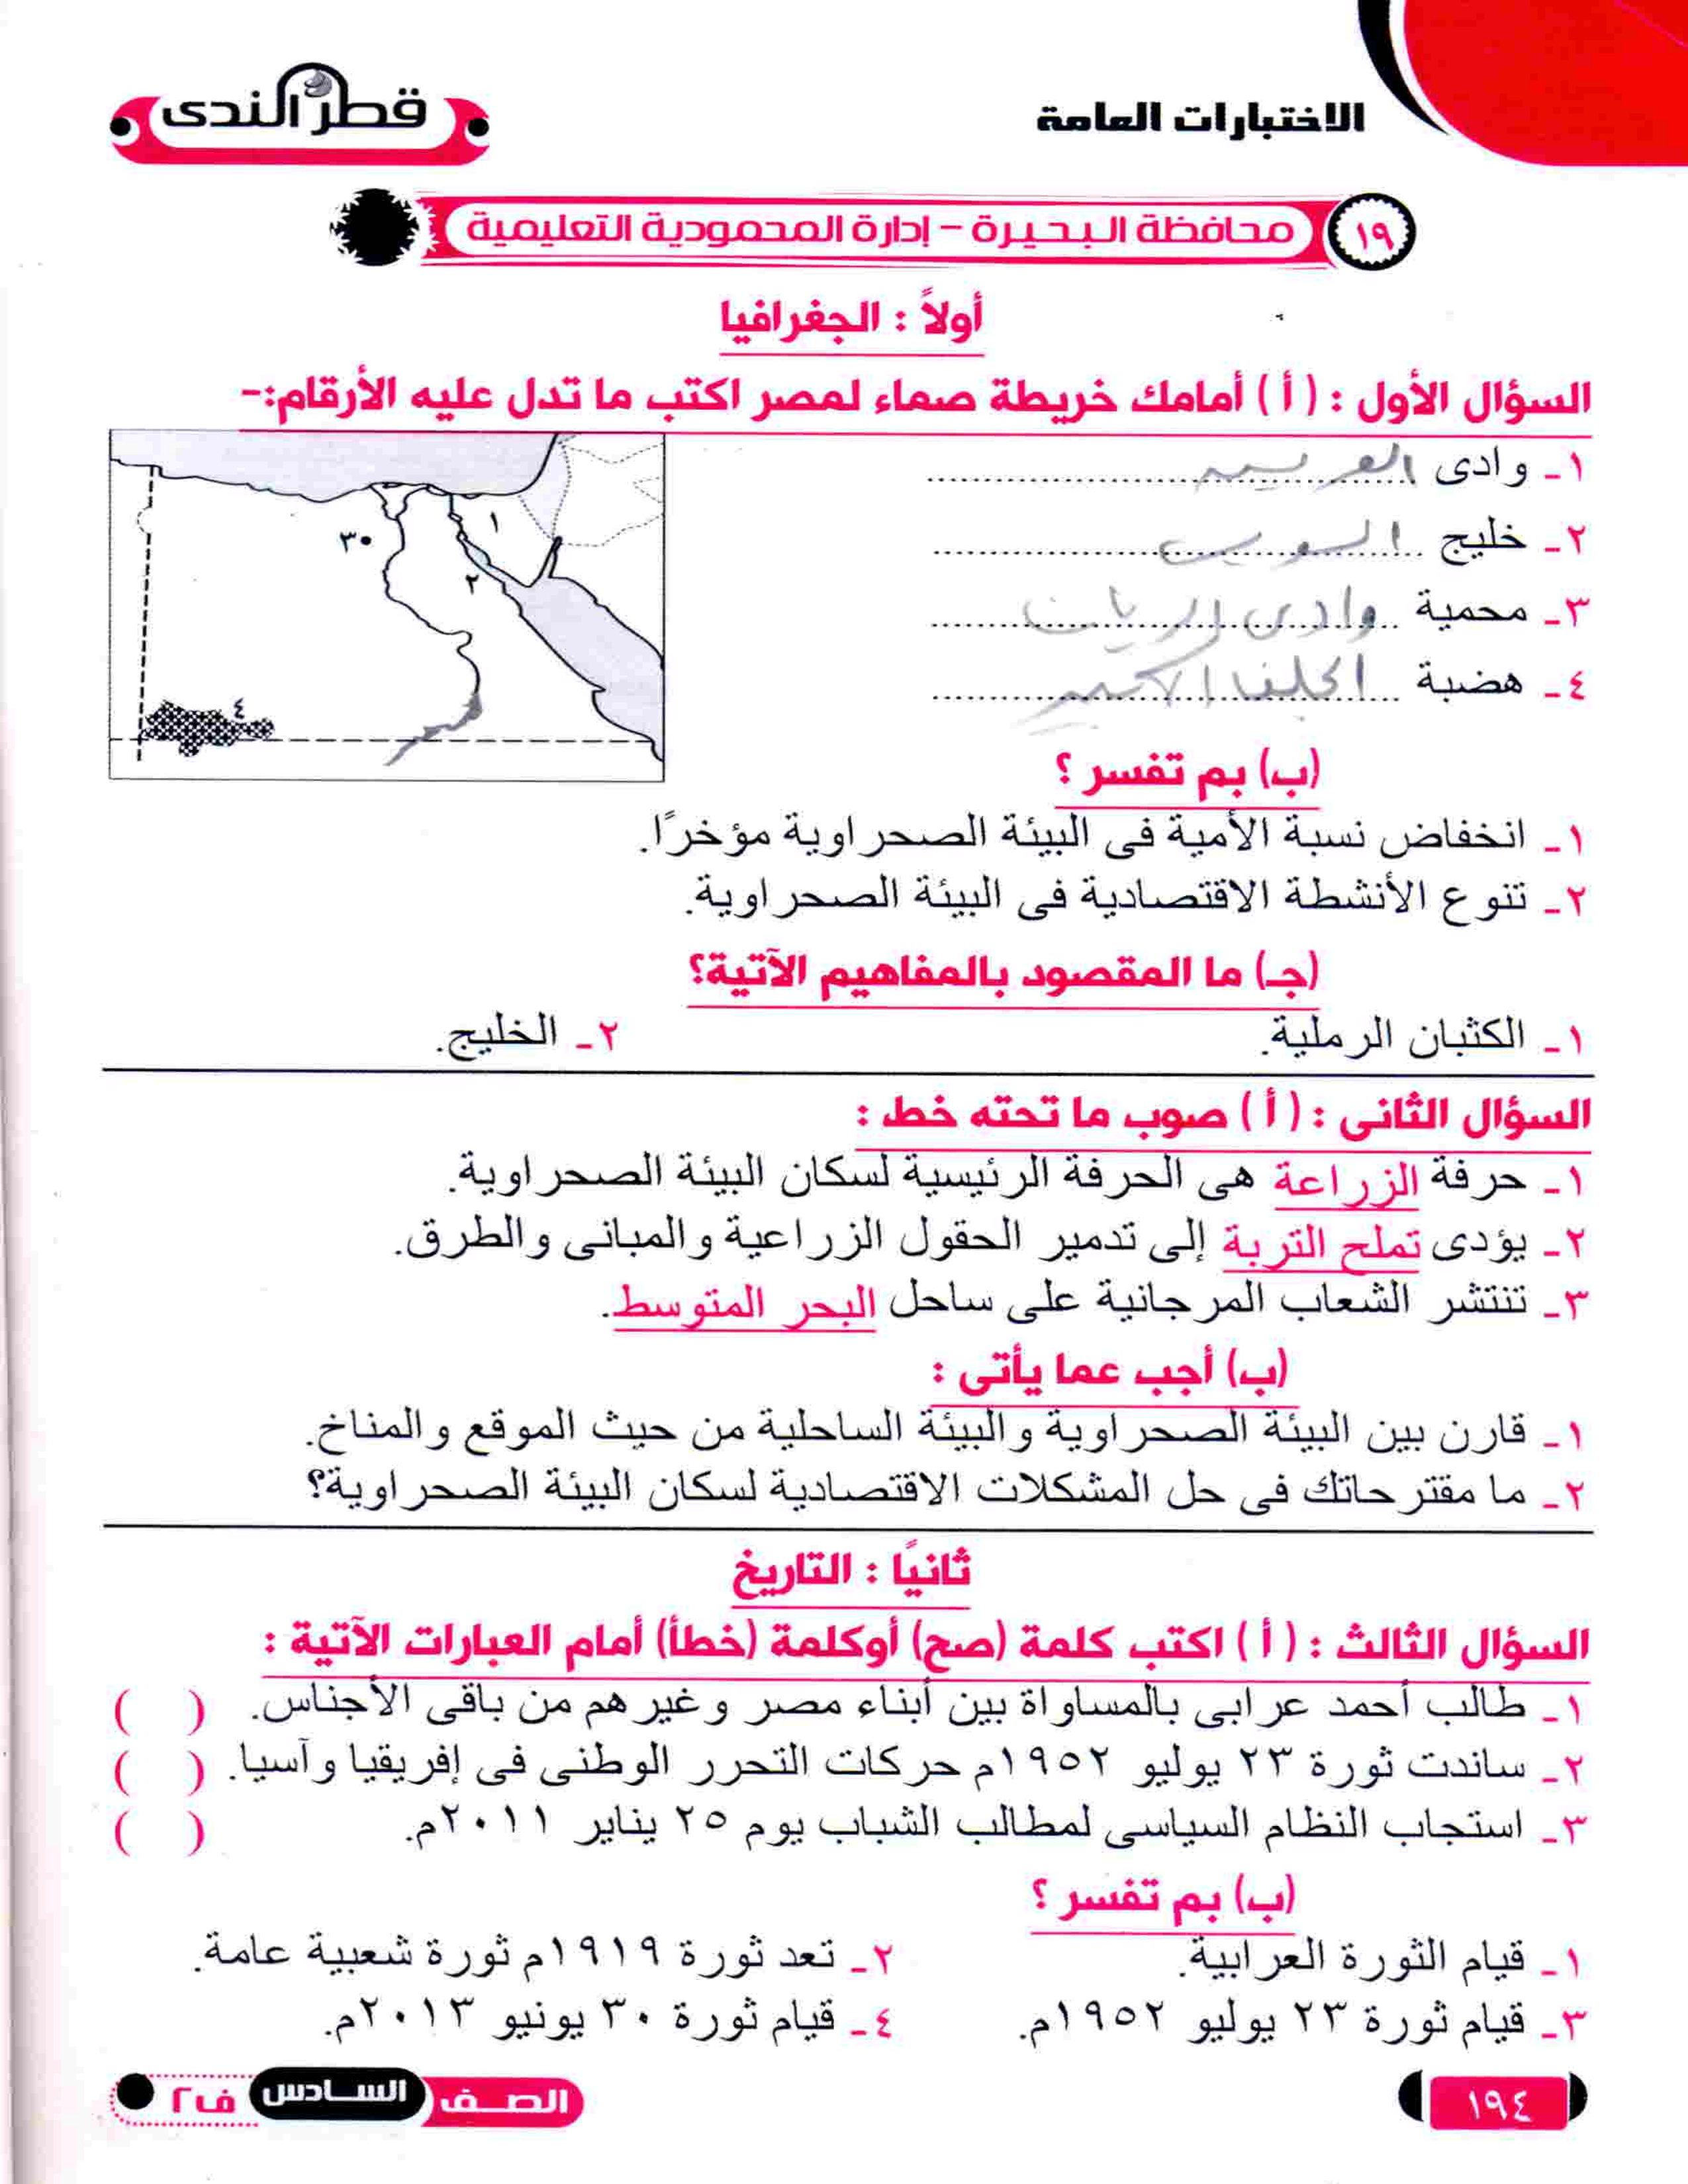 الاختبارات العامة
قطر الندى
١٩ محافظة البحيرة - إدارة المحمودية التعليمية
أولاً : الجغرافيا
السؤال الأول : ( أ ) أمامك خريطة صماء لمصر اكتب ما تدل عليه الأرقام:-
١ـ وادى العريش
٢ـ خليج السويس
٣ـ محمية وادى الريان
٤ـ هضبة الجلف الكبير
١
٢
٣
٤
(ب) بم تفسر ؟
١ـ انخفاض نسبة الأمية فى البيئة الصحراوية مؤخرًا.
٢ـ تنوع الأنشطة الاقتصادية فى البيئة الصحراوية.
(جـ) ما المقصود بالمفاهيم الآتية؟
١ـ الكثبان الرملية. ٢ـ الخليج.
السؤال الثانى : ( أ ) صوب ما تحته خط :
١ـ حرفة الزراعة هى الحرفة الرئيسية لسكان البيئة الصحراوية.
٢ـ يؤدى تملح التربة إلى تدمير الحقول الزراعية والمبانى والطرق.
٣ـ تنتشر الشعاب المرجانية على ساحل البحر المتوسط.
(ب) أجب عما يأتى :
١ـ قارن بين البيئة الصحراوية والبيئة الساحلية من حيث الموقع والمناخ.
٢ـ ما مقترحاتك فى حل المشكلات الاقتصادية لسكان البيئة الصحراوية؟
ثانيًا : التاريخ
السؤال الثالث : ( أ ) اكتب كلمة (صح) أوكلمة (خطأ) أمام العبارات الآتية :
١ـ طالب أحمد عرابى بالمساواة بين أبناء مصر وغيرهم من باقى الأجناس. ( )
٢ـ ساندت ثورة ٢٣ يوليو ١٩٥٢م حركات التحرر الوطنى فى إفريقيا وآسيا. ( )
٣ـ استجاب النظام السياسى لمطالب الشباب يوم ٢٥ يناير ٢٠١١م. ( )
(ب) بم تفسر ؟
١ـ قيام الثورة العرابية. ٢ـ تعد ثورة ١٩١٩م ثورة شعبية عامة.
٣ـ قيام ثورة ٢٣ يوليو ١٩٥٢م. ٤ـ قيام ثورة ٣٠ يونيو ٢٠١٣م.
١٩٤
الصف السادس ف٢